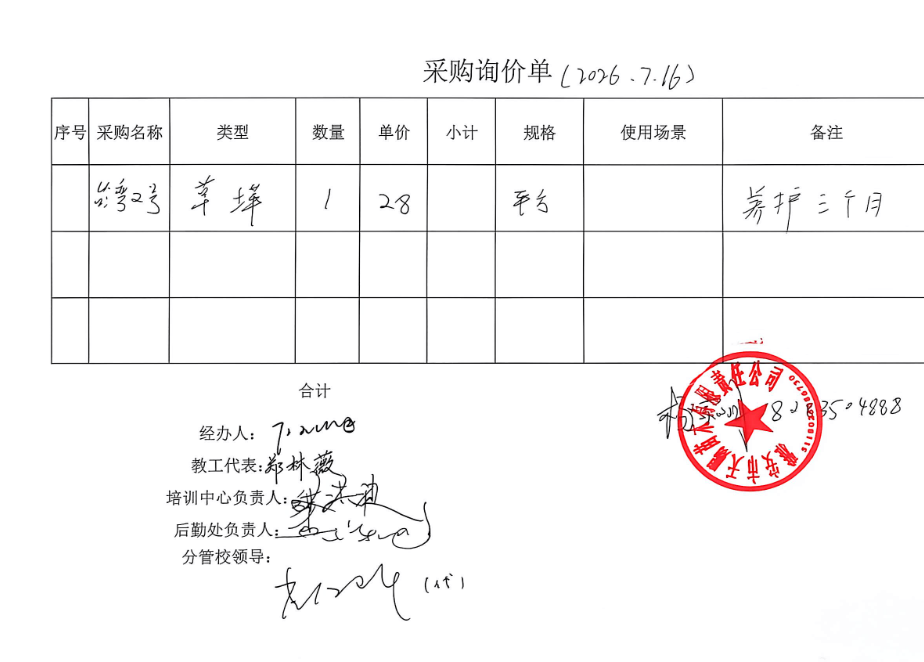 采购询价单（2026.7.16）
序号 采购名称 类型 数量 单价 小计 规格 使用场景 备注
台湾2号 草坪 1 28 平方 养护三个月
合计
经办人：
教工代表：郑林薇
培训中心负责人：
后勤处负责人：
分管校领导：
（代）
雅安市天 苗木有限责任公司